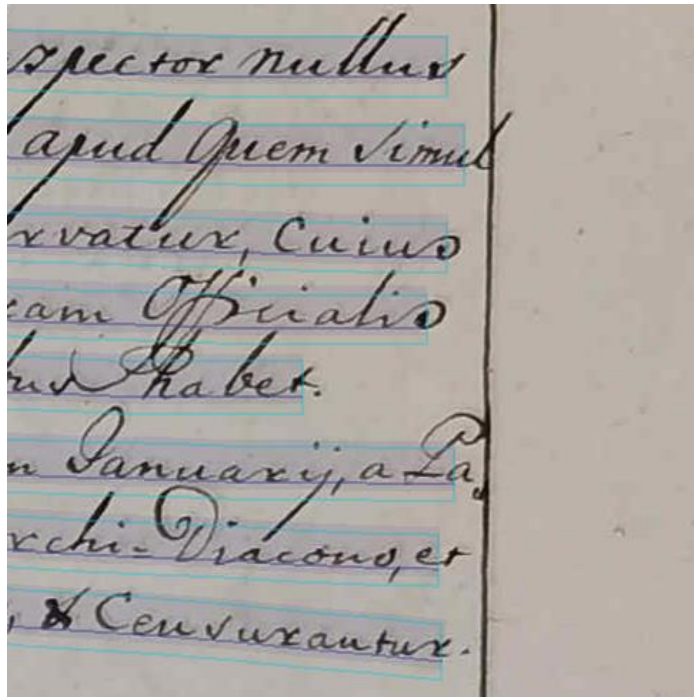 spector nullus
apud Quem simul
rvatur, Cuius
cam Officialis
tus habet.
n Januarij, a Pa,
rchi-Diacono, et
, & Censurantur.